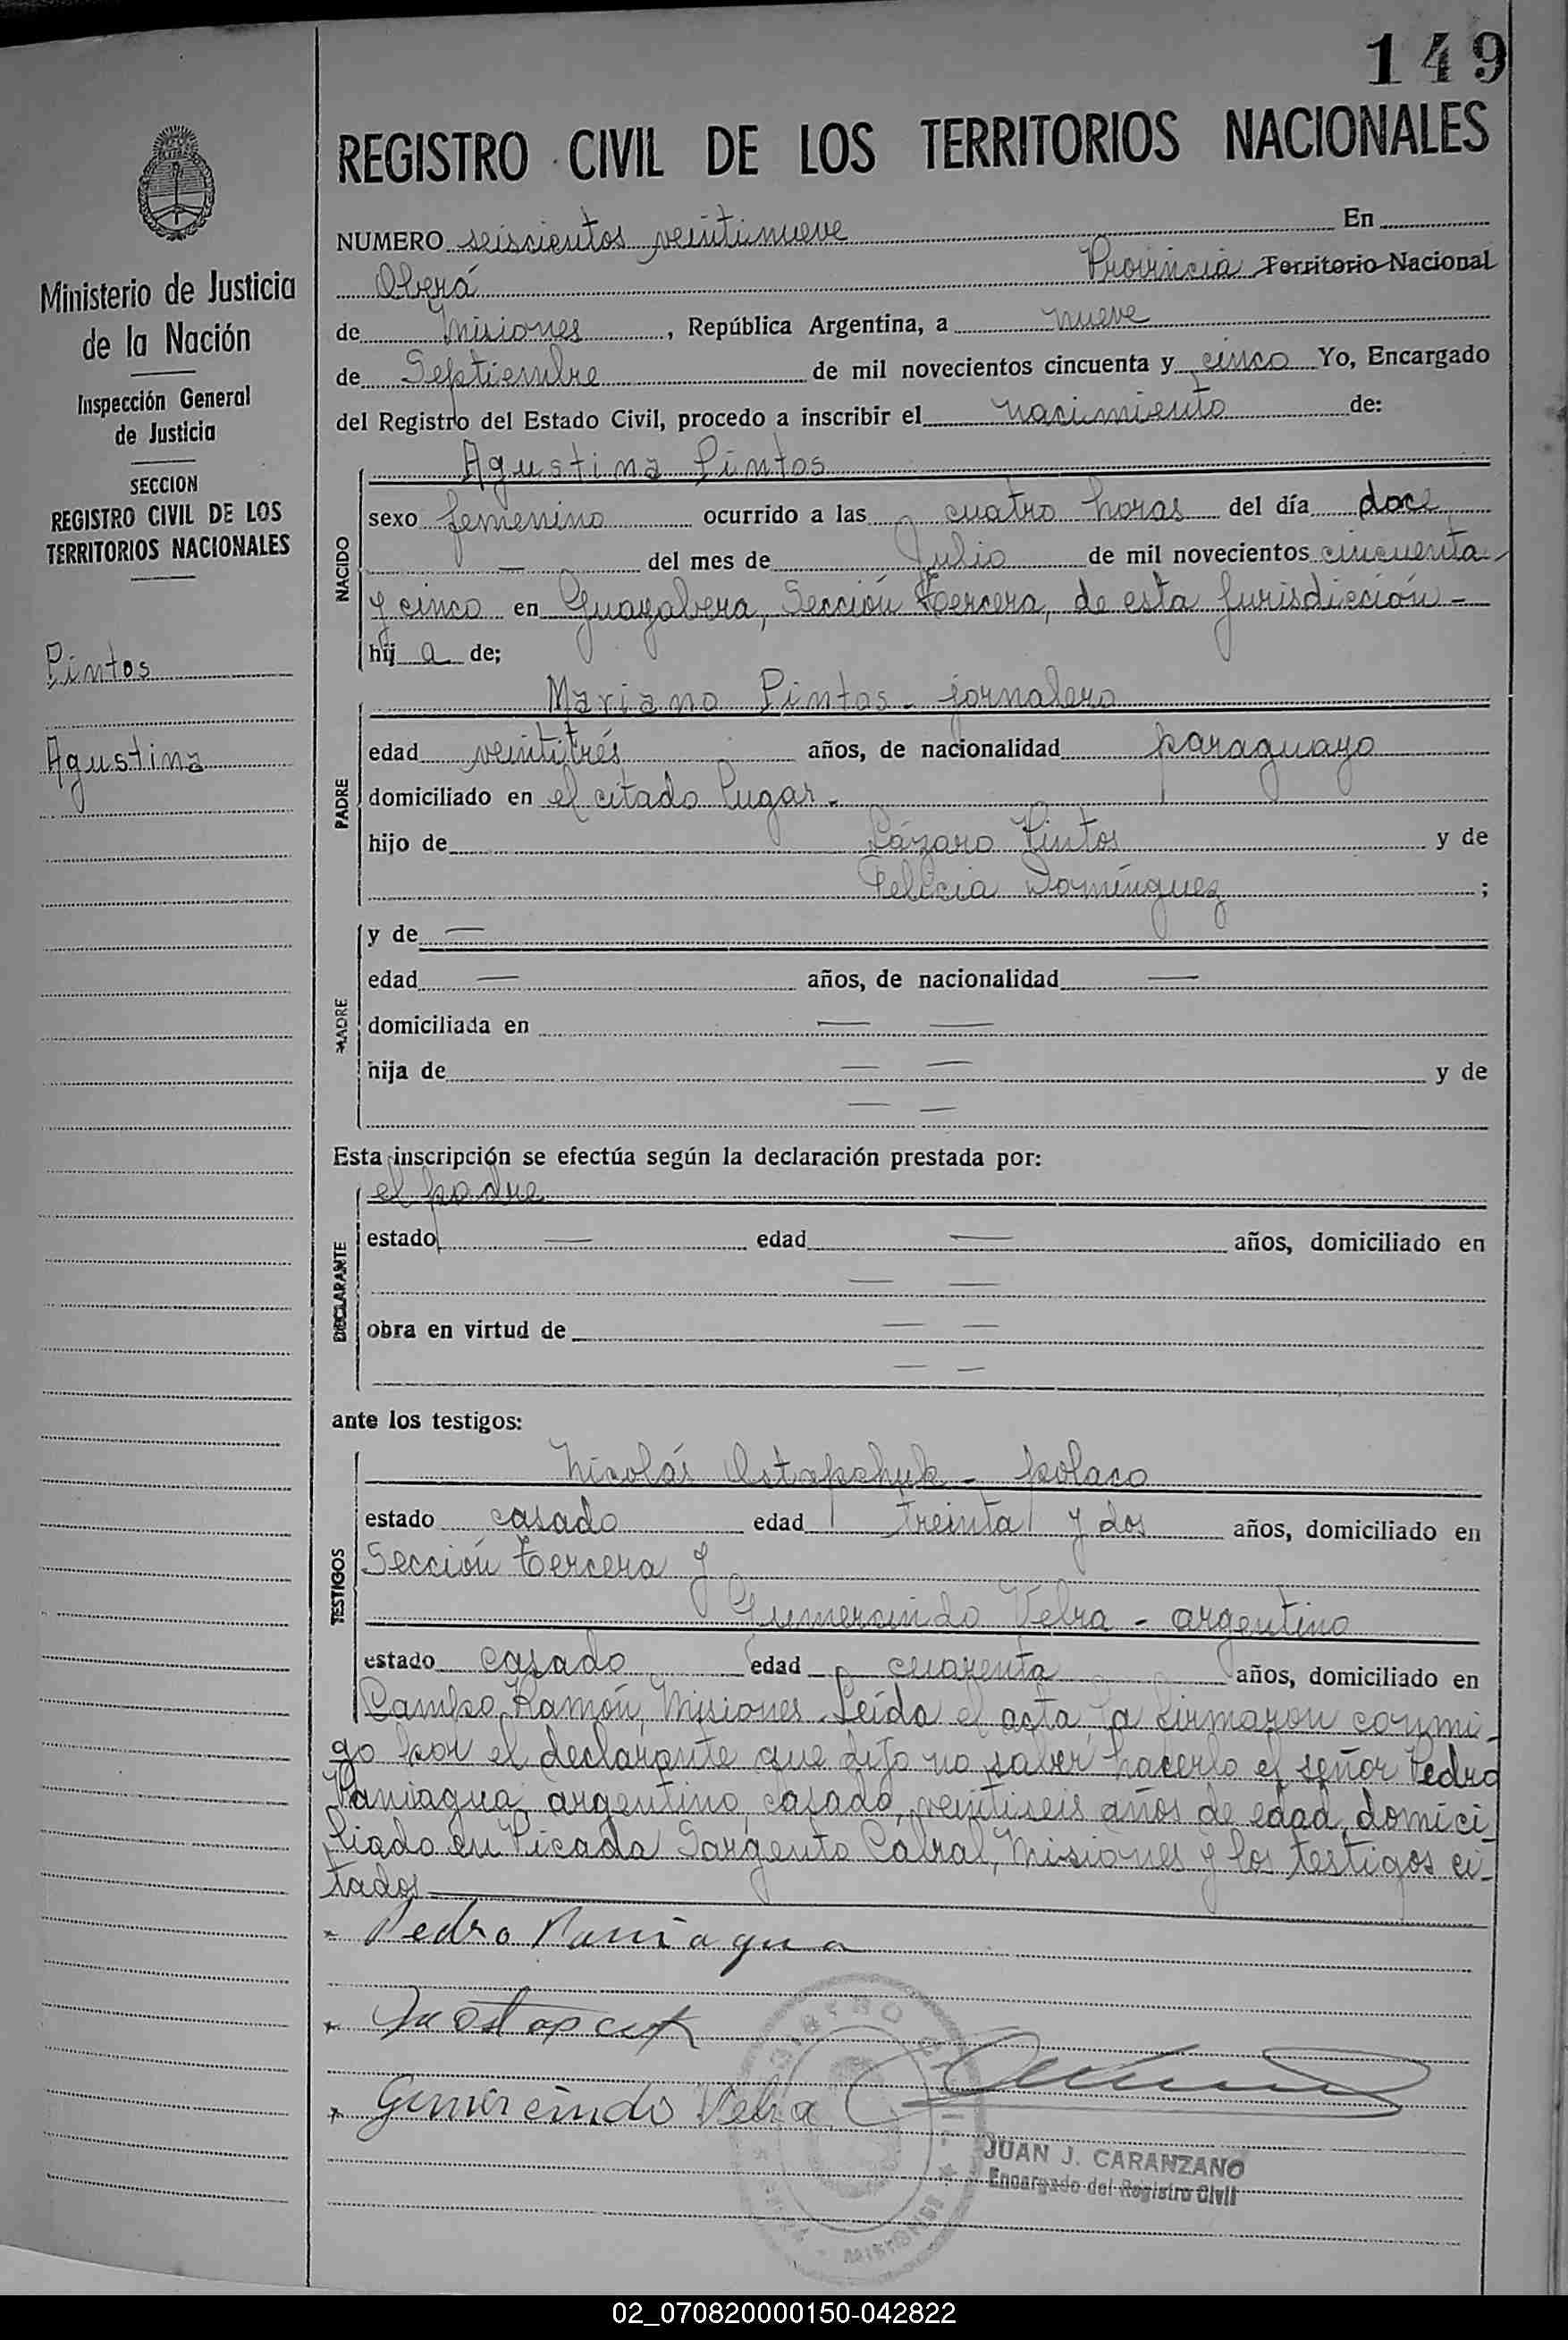 149
REGISTRO CIVIL DE LOS TERRITORIOS NACIONALES
Ministerio de Justicia
de la Nación
Inspección General
de Justicia
SECCION
REGISTRO CIVIL DE LOS
TERRITORIOS NACIONALES
Pintos
Agustina
NUMERO seiscientos veintinueve En
Oberá Provincia Territorio Nacional
de Misiones, República Argentina, a nueve
de Septiembre de mil novecientos cincuenta y cinco Yo, Encargado
del Registro del Estado Civil, procedo a inscribir el nacimiento de:
NACIDO
Agustina Pintos
sexo femenino ocurrido a las cuatro horas del día doce
— del mes de Julio de mil novecientos cincuenta
y cinco en Guayabera, Sección tercera, de esta jurisdicción -
hij a de;
PADRE
Mariano Pintos - jornalero
edad veintitrés años, de nacionalidad paraguayo
domiciliado en el citado lugar -
hijo de Lázaro Pintos y de
Felicia Domínguez ;
MADRE
y de —
edad — años, de nacionalidad —
domiciliada en — —
hija de — — y de
— —
Esta inscripción se efectúa según la declaración prestada por:
DECLARANTE
el padre
estado — edad — años, domiciliado en
— —
obra en virtud de — —
— —
ante los testigos:
TESTIGOS
Nicolás Ostapchuk - polaco
estado casado edad treinta y dos años, domiciliado en
Sección tercera y
Gumercindo Velra - argentino
estado casado edad cuarenta años, domiciliado en
Campo Ramón, Misiones. Leída el acta, la firmaron conmi-
go por el declarante que dijo no saber hacerlo el señor Pedro
Paniagua, argentino, casado, veintiseis años de edad, domici-
liado en Picada Sargento Cabral, Misiones y los testigos ci-
tados
Pedro Paniagua
Gumercindo Velra
JUAN J. CARANZANO
Encargado del Registro Civil
02_070820000150-042822